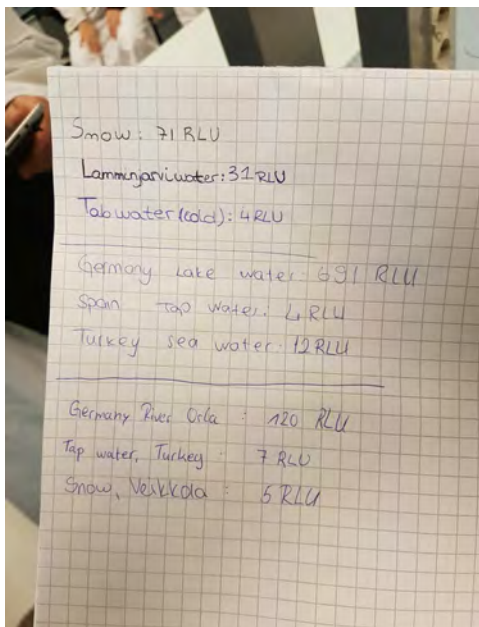 Snow: 71 RLU
Lammınjarviwater: 31 RLU
Tab water (cold): 4 RLU
Germany Lake water: 691 RLU
Spain Tap water: 4 RLU
Turkey sea water: 12 RLU
Germany River Orla : 120 RLU
Tap water, Turkey : 7 RLU
Snow, Veikkola : 5 RLU